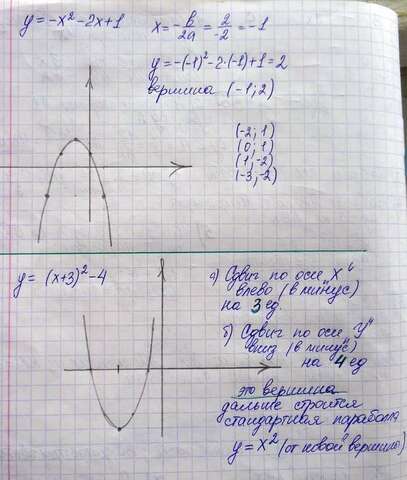 y = -x² - 2x + 1
x = -в/2a = 2/-2 = -1
y = -(-1)² - 2·(-1) + 1 = 2
вершина (-1; 2)
(-2; 1)
(0; 1)
(1; -2)
(-3; -2)
y = (x+3)² - 4
а) Сдвиг по оси "X"
влево (в минус)
на 3 ед.
б) Сдвиг по оси "У"
вниз (в минус)
на 4 ед
это вершина
дальше строится
стандартная парабола
y = x² (от новой вершины)